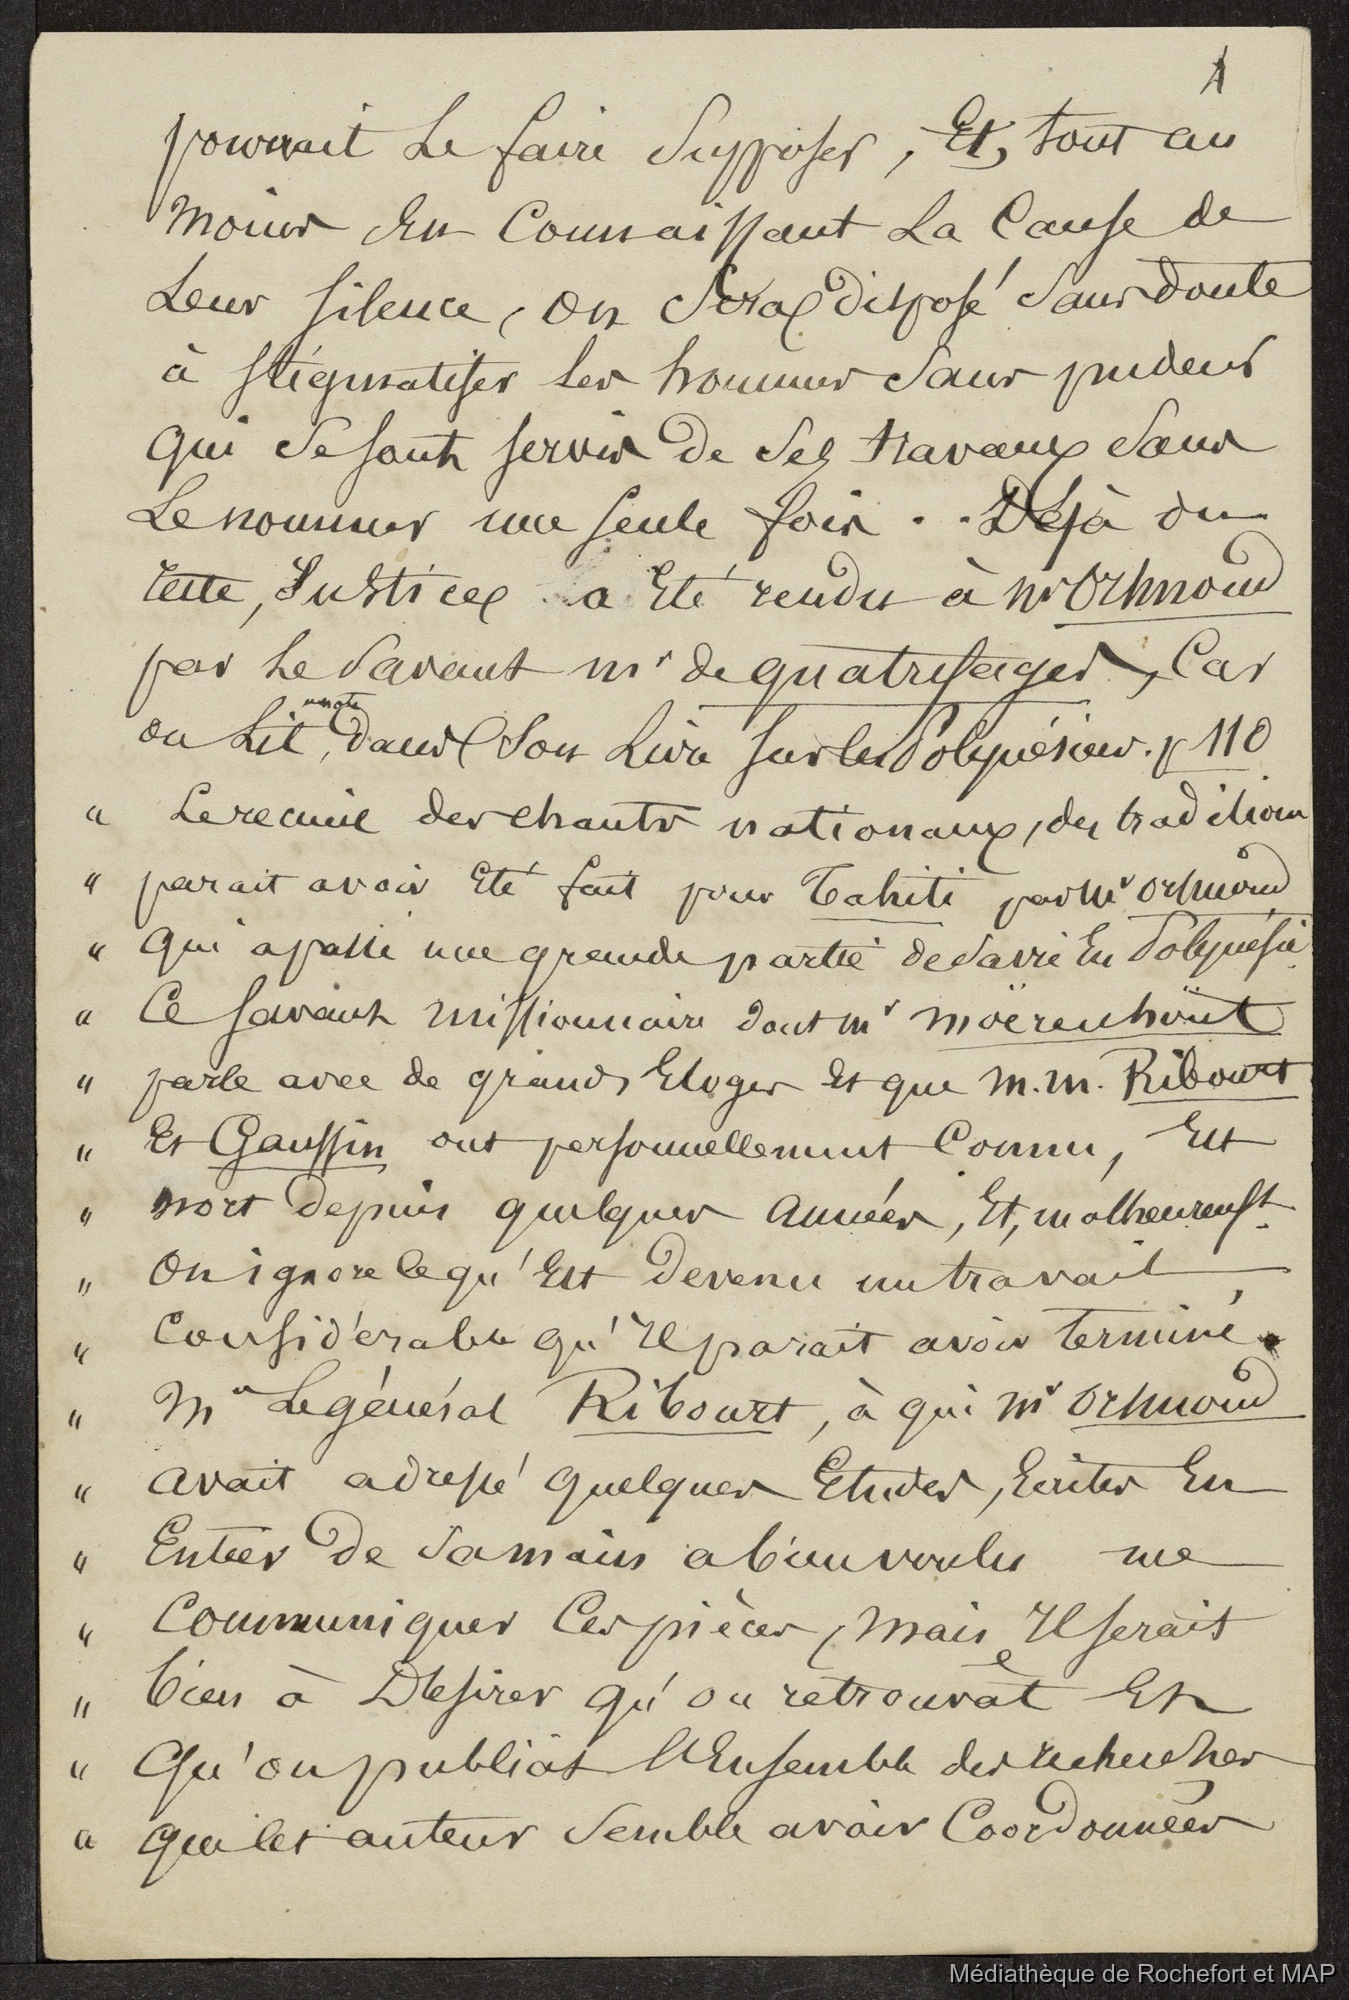 1
pourrait le faire supposer, Et, tout au
moins En Connaissant La Cause de
Leur silence, on sera disposé sans doute
à stigmatiser les hommes sans pudeur
qui se sont servis de ses travaux sans
Le nommer une seule fois . . Déjà du
reste, Justice a Eté rendu à Mr Orhmond
par Le Savant mr de quatrefages, Car
en note
on Lit, dans son Livre sur les Polynésiens. p 110
" Le recueil des chants nationaux, des traditions
" parait avoir Eté fait pour Tahiti par Mr Orhmond
" qui a passé une grande partie de sa vie En Polynésie
" Ce savant missionnaire dont mr moërenhoüt
" parle avec de grands Eloges Et que M.M. Ribourt
" Et Gaussin ont personnellement Connu, Est
" mort depuis quelques années, Et, malheureust.
" On ignore ce qu'Est devenu un travail
" Considérable qu'Il parait avoir terminé.
" Mr Le général Ribourt, à qui Mr Orhmond
" avait adressé quelques Etudes, Ecrites En
" Entier de sa main a bien voulu me
" Communiquer Ces pièces, mais Il serait
" bien à Désirer qu'on retrouvât Et
" Qu'on publiât l'Ensemble des recherches
" que cet auteur semble avoir Coordonnées
Médiathèque de Rochefort et MAP